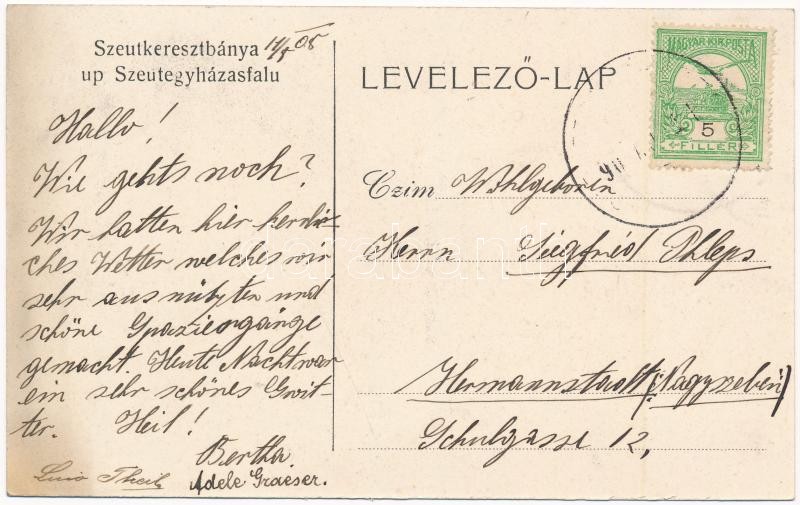 Szeutkeresztbánya 11/8 08
up Szeutegyházasfalu
LEVELEZŐ-LAP
MAGYAR KIR. POSTA
5
FILLÉR
Hallo!
Wie gehts noch?
Wir hatten hier herrli-
ches Wetter welches wir
sehr ausnützten und
schöne Spaziergänge
gemacht. Heute Nacht war
ein sehr schönes Gwit-
ter. Heil!
Bertha.
Adele Graeser.
Czim Wohlgeboren
Herrn Siegfried Phleps
Hermannstadt (Nagyszeben)
Schulgasse 12,
darabanth